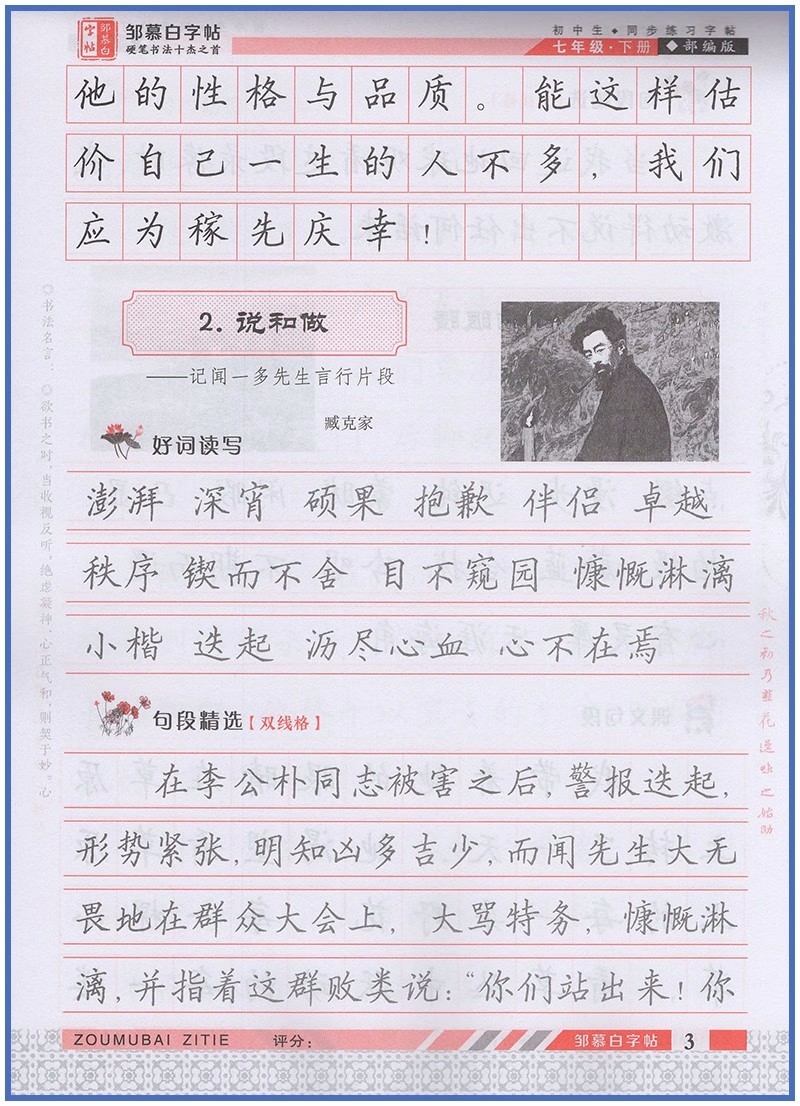 邹慕白字帖
邹慕白字帖
硬笔书法十杰之首
初中生◆同步练习字帖
七年级·下册 ◆部编版
他的性格与品质。能这样估
价自己一生的人不多，我们
应为稼先庆幸！
2. 说和做
——记闻一多先生言行片段
臧克家
好词读写
澎湃 深宵 硕果 抱歉 伴侣 卓越
秩序 锲而不舍 目不窥园 慷慨淋漓
小楷 迭起 沥尽心血 心不在焉
句段精选【双线格】
在李公朴同志被害之后，警报迭起，
形势紧张，明知凶多吉少，而闻先生大无
畏地在群众大会上，大骂特务，慷慨淋
漓，并指着这群败类说：“你们站出来！你
◎书法名言：◎欲书之时，当收视反听，绝虑凝神，心正气和，则契于妙。心
ZOUMUBAI ZITIE 评分：
邹慕白字帖 3